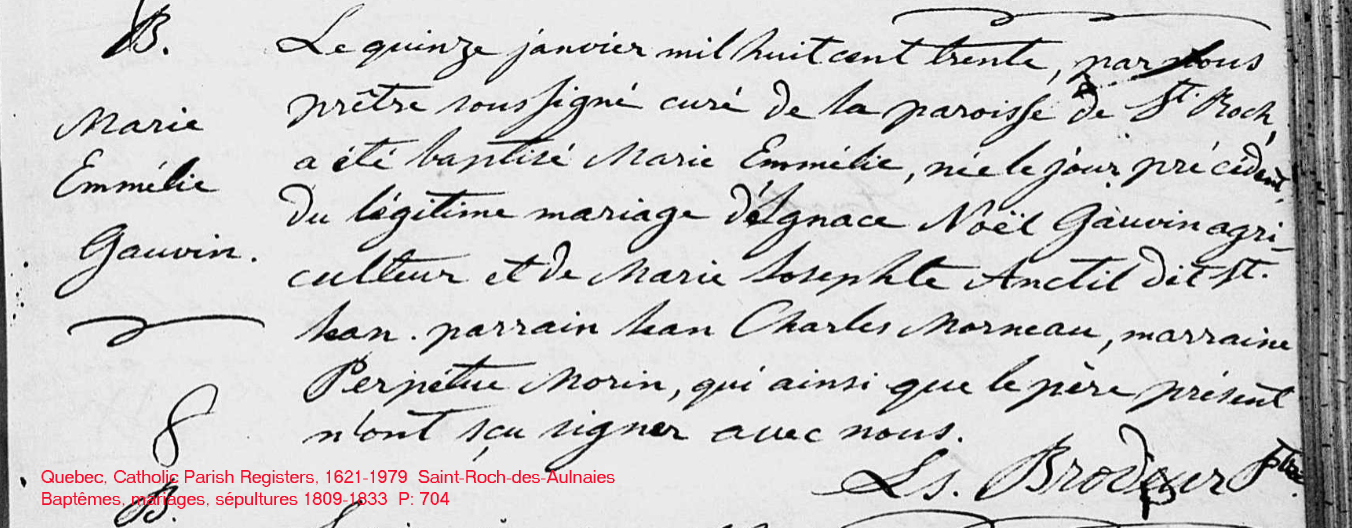 B.
Marie
Emmélie
Gauvin.
8
Le quinze janvier mil huit cent trente, par nous
prêtre soussigné curé de la paroisse de St Roch,
a été baptisé Marie Emmélie, née le jour précédent,
du légitime mariage d'Ignace Noël Gauvin agri
culteur et de Marie Josephte Anctil dit St.
Jean. parrain Jean Charles Morneau, marraine
Perpétue Morin, qui ainsi que le père présent
n'ont sçu signer avec nous.
Ls. Brodeur Ptre.
Quebec, Catholic Parish Registers, 1621-1979 Saint-Roch-des-Aulnaies
Baptêmes, mariages, sépultures 1809-1833 P: 704
B.